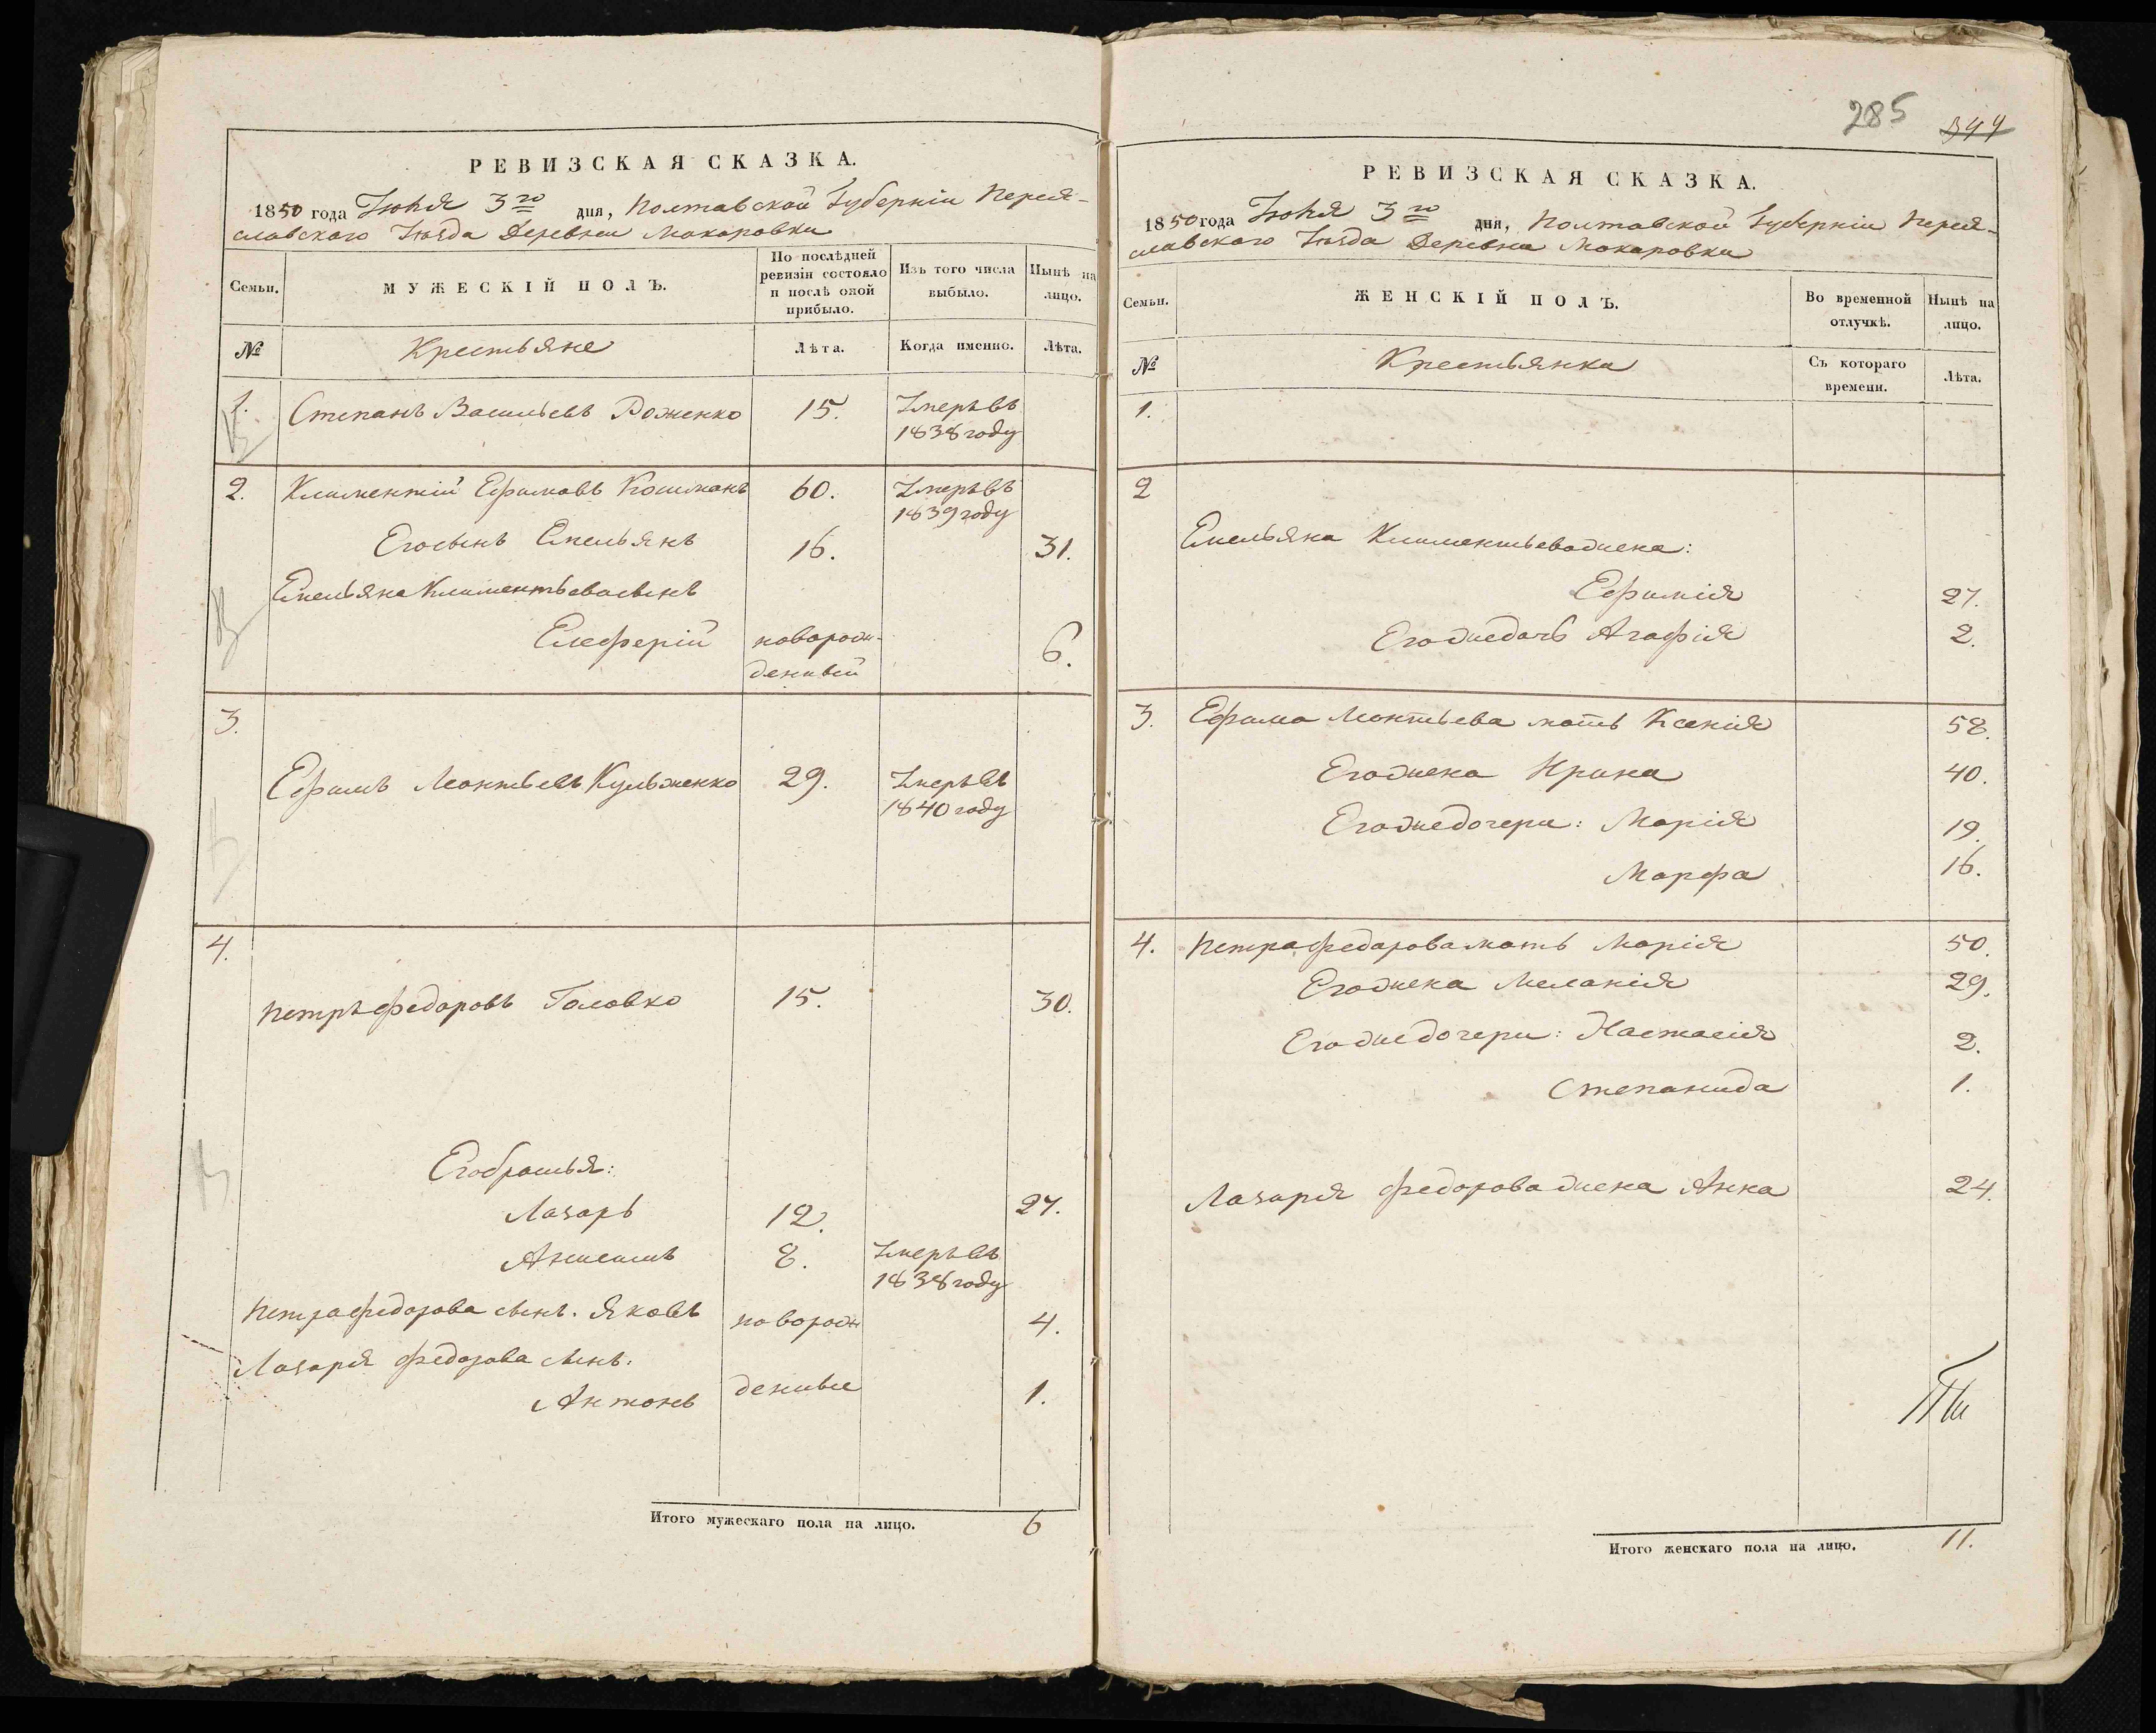 РЕВИЗСКАЯ СКАЗКА.
1850 года Іюня 3го дня, Полтавской Губерніи Перея-
славскаго Уѣзда Деревни Макаровки
Семьи.
МУЖЕСКІЙ ПОЛЪ.
По послѣдней ревизіи состояло и послѣ оной прибыло.
Изъ того числа выбыло.
Нынѣ на лицо.
№
Крестьяне
Лѣта.
Когда именно.
Лѣта.
1. Степанъ Васильевъ Роженко 15. Умеръ въ
1838 году
2. Климентій Ефимовъ Кошманъ 60. Умеръ въ
1839 году
Его сынъ Емельянъ 16. 31.
Емельяна Климентьева сынъ
Елеферій новорож- 6.
денный
3.
Ефимъ Леонтьевъ Кульженко 29. Умеръ въ
1840 году
4.
Петръ Федоровъ Головко 15. 30.
Его братья:
Лазарь 12. 27.
Анисимъ 8. Умеръ въ
1838 году
Петра Федорова сынъ. Яковъ новорож 4.
Лазаря Федорова сынъ:
Антонъ денные 1.
Итого мужескаго пола на лицо. 6
285 344
РЕВИЗСКАЯ СКАЗКА.
1850 года Іюня 3го дня, Полтавской Губерніи Перея-
славскаго Уѣзда Деревни Макаровки
Семьи.
ЖЕНСКІЙ ПОЛЪ.
Во временной отлучкѣ.
Нынѣ на лицо.
№
Крестьянки
Съ котораго времени.
Лѣта.
1.
2
Емельяна Климентьева жена:
Ефимія 27.
Его же дочь Агафія 2.
3. Ефима Леонтьева мать Ксенія 58.
Его жена Ирина 40.
Его же дочери: Марія 19.
Марфа 16.
4. Петра Федорова мать Марія 50.
Его жена Меланія 29.
Его же дочери: Настасія 2.
Степанида 1.
Лазаря Федорова жена Анна 24.
Итого женскаго пола на лицо. 11.